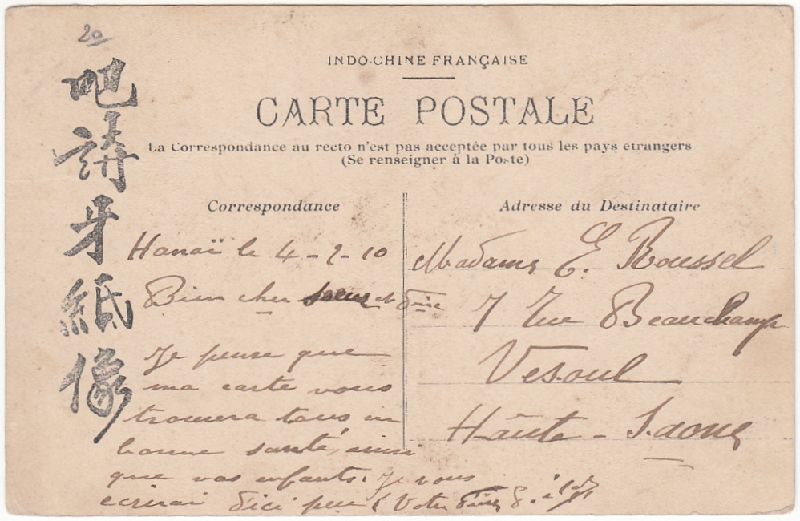 20
吧請牙紙像
INDO-CHINE FRANÇAISE
CARTE POSTALE
La Correspondance au recto n'est pas acceptée par tous les pays étrangers
(Se renseigner à la Poste)
Correspondance
Hanoï le 4-2-10
Bien cher soeur et frère
Je pense que
ma carte vous
trouvera tous en
bonne santé, ainsi
que vos enfants. Je vous
écrirai d'ici peu Votre frère
Adresse du Destinataire
Madame E. Roussel
7 Rue Beauchamp
Vesoul
Haute-Saone